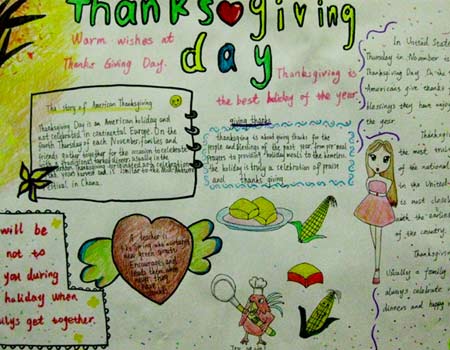 Thanksgiving
day
Warm wishes at
Thanks Giving Day.
Thanksgiving is
the best holiday of the year.
The story of American Thanksgiving
Thanksgiving Day is an American holiday and
not celebrated in continental Europe. On the
fourth Thursday of each November, families and
friends gather together for the occasion to celebrate
with a traditional turkey dinner, usually in the
Thanksgiving originated as a celebration
harvest and is similar to the
Festival in China.
giving thanks
thanksgiving is about giving thanks for the
people and blessings of the past year. from pre-meal
prayers to providing holiday meals to the homeless.
the holiday is truly a celebration of praise
and thanks giving
In United State
Thursday in November is
Thanksgiving Day. In the
Americans give thanks f
blessings they have enjoyed
the year.
Thanksgiv
the most
national
the United
is most closel
with the earlies
of the country.
Thanksgiving
usually a family
always celebrate
dinners and happy
will be
not to
you during
holiday when
ilys get together.
teacher is
the Spring who nurtures
new green
Encourages and
them